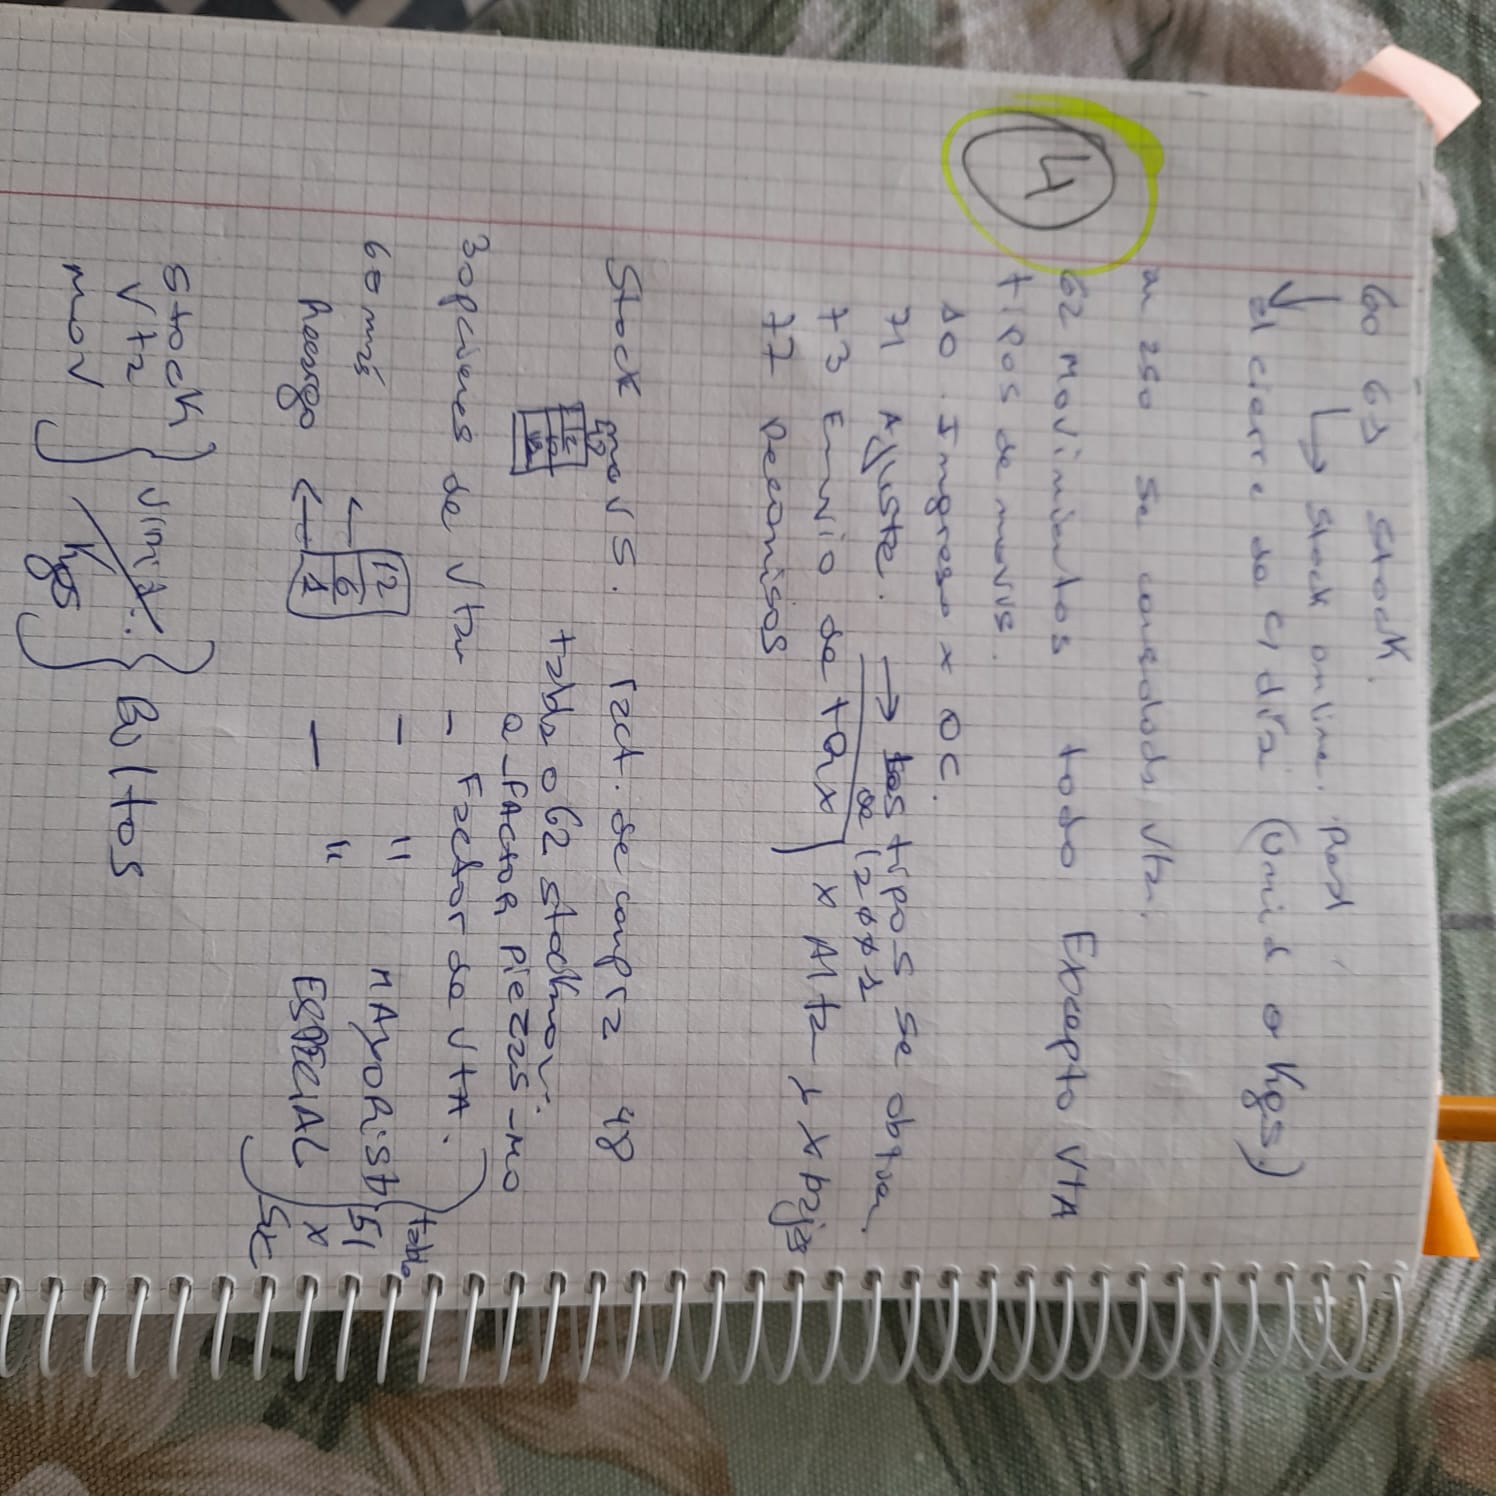 60 61 Stock.
↳ Stock online. Real
↓ al cierre de el día (Unid o Kgs)
en 250 se consolods Vta.
4
62 Movimientos todo Excepto VTA
tipos de movis.
10. Ingreso x OC.
71 Ajuste. → los tipos se obtien
de 12001
73 Envio de tax x Alta y x baja
77 Decomisos
Stock movs. fact. de compra 48
tabla 062 stockmov.
12 a_FACTOR piezas_mo
3 opciones de Vta - Factor de VTA.
60 más ← 12 6 1 - " MAYORISTA
Recargo ← - " ESPECIAL
tabla 51 x
Stock
Vta
mov
Unid.
Kgs
Bultos